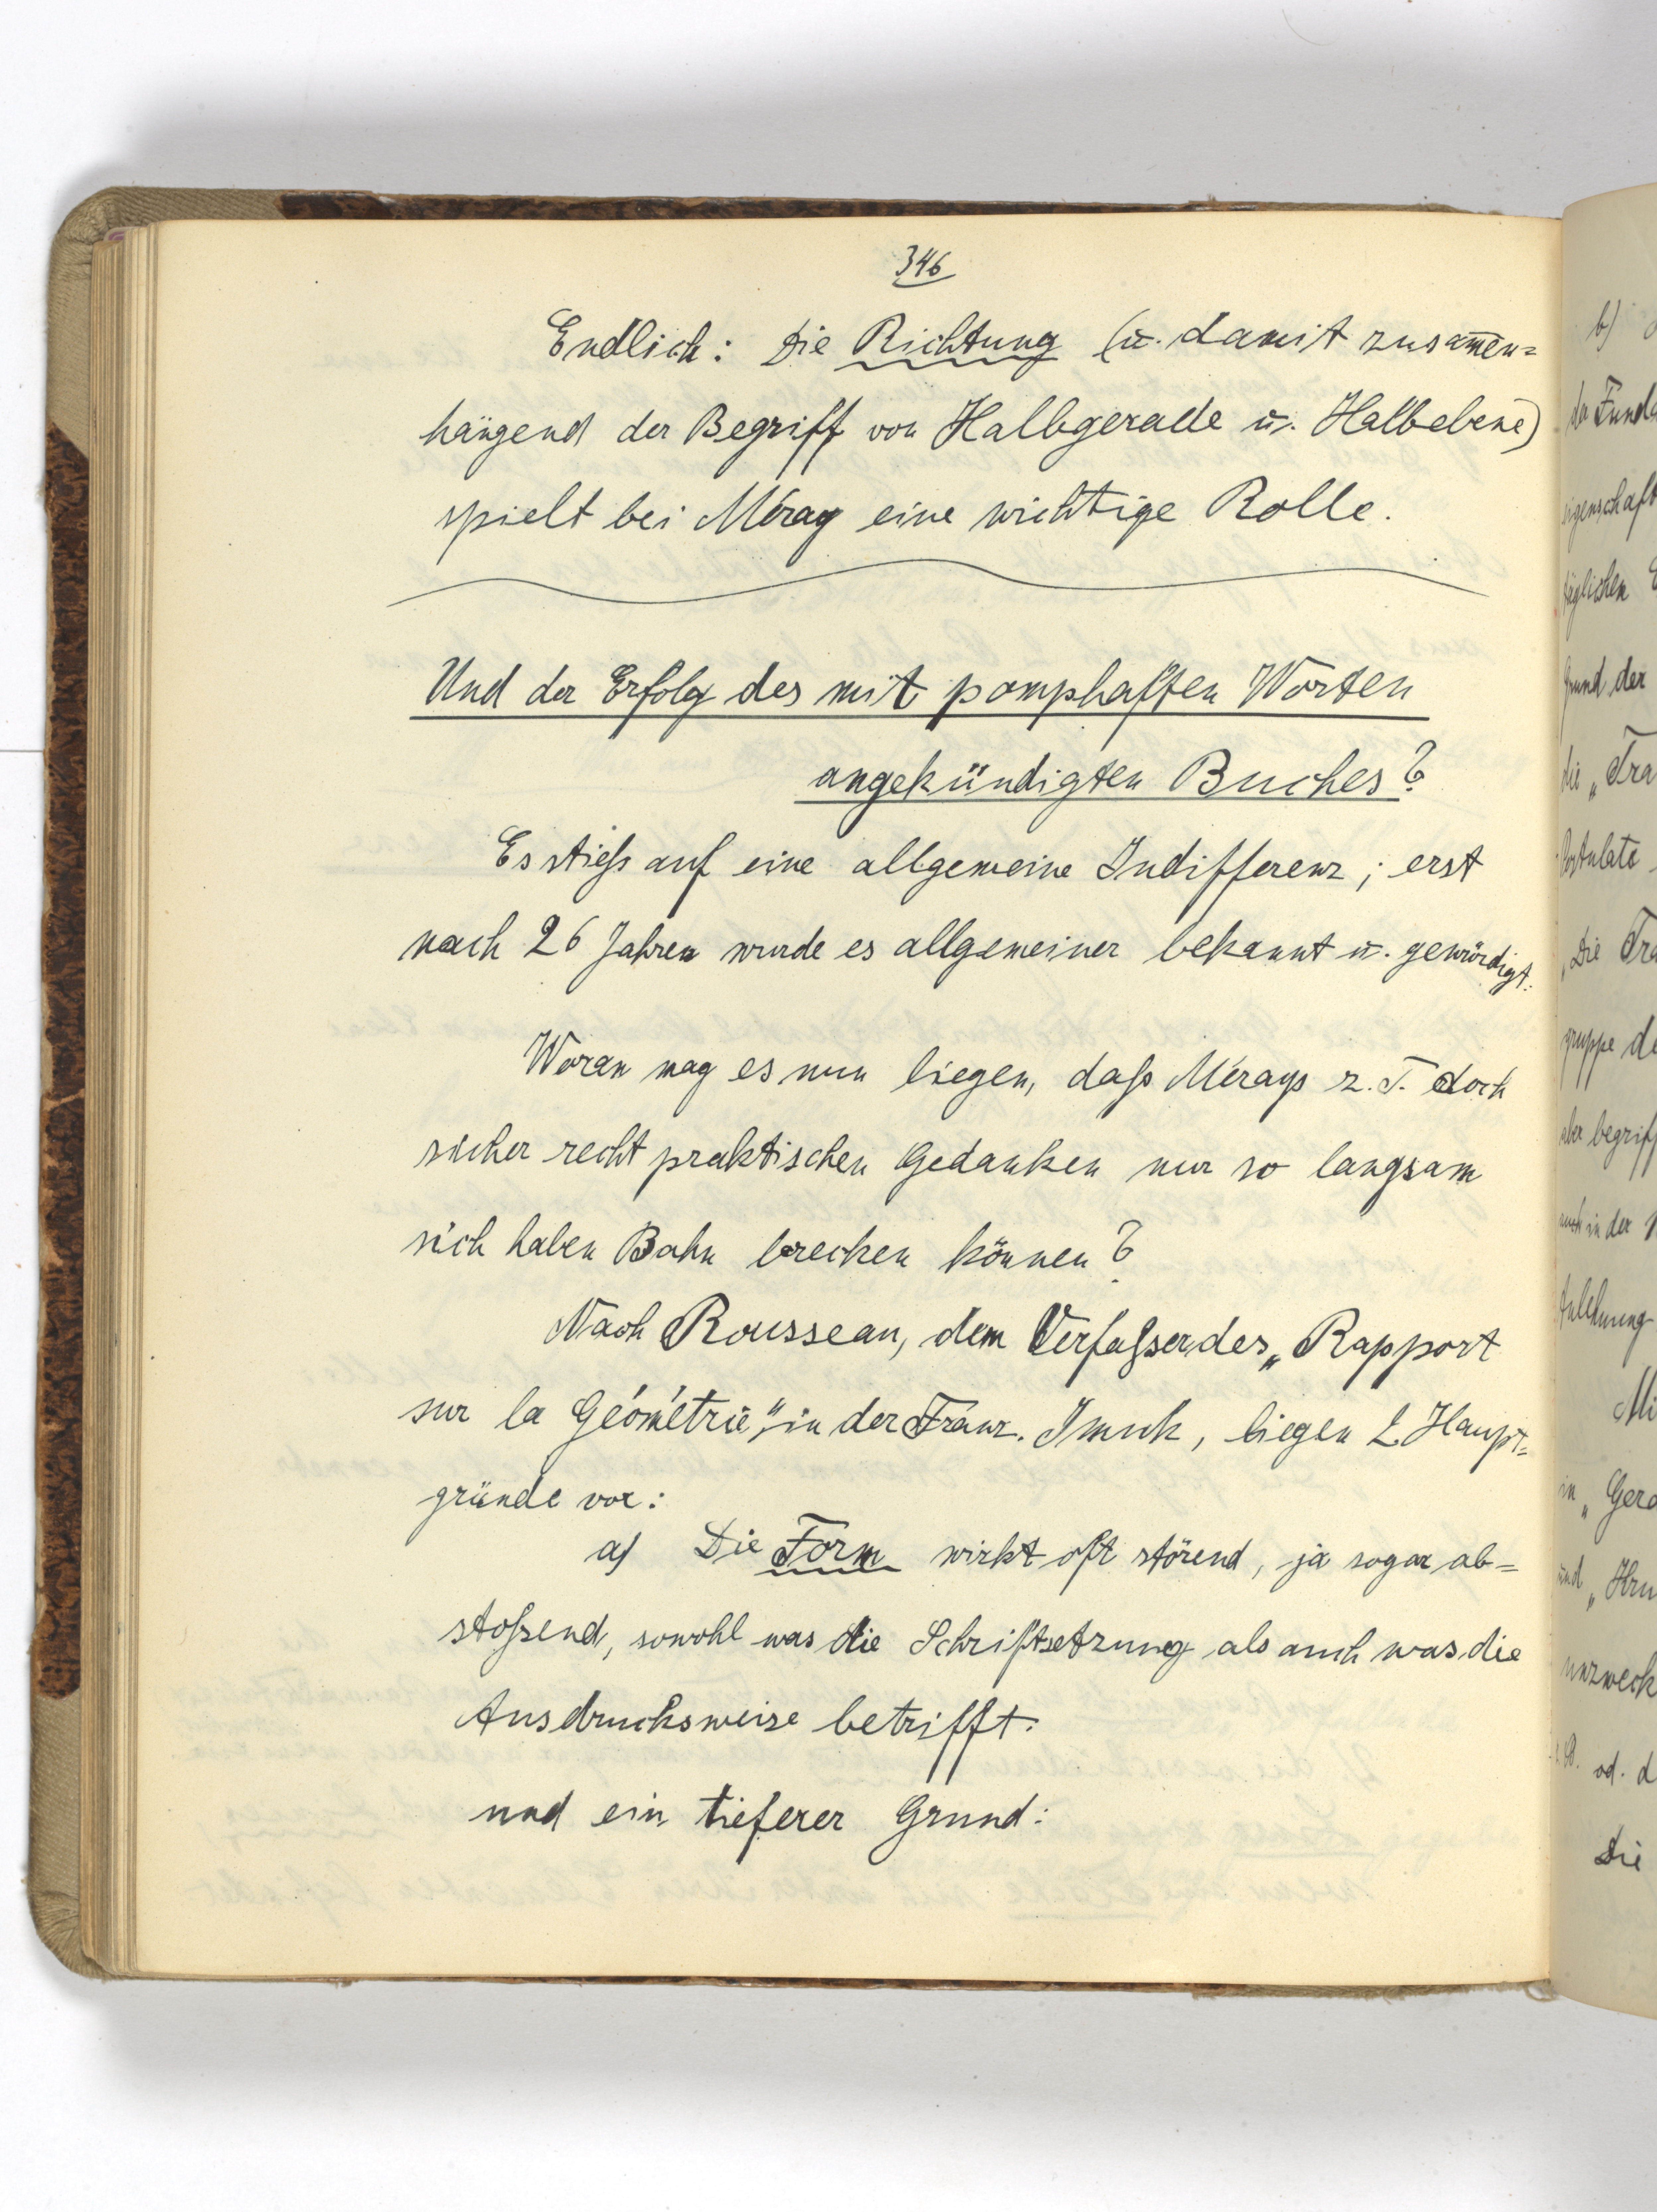 346
Endlich: Die Richtung (u. damit zusam̅en=
hängend der Begriff von Halbgerade u. Halbebene)
spielt bei Méray eine wichtige Rolle.
Und der Erfolg des mit pomphaften Worten
angekündigten Buches?
Es stieß auf eine allgemeine Indifferenz; erst
nach 26 Jahren wurde es allgemeiner bekannt u. gewürdigt.
Woran mag es nun liegen, daß Mérays z. T. doch
sicher recht praktischen Gedanken nur so langsam
sich haben Bahn brechen können?
Nach Rousseau, dem Verfaßer des „Rapport
sur la Géométrie", in der Franz. Imuk, liegen 2 Haupt=
gründe vor:
a) Die Form wirkt oft störend, ja sogar ab=
stoßend, sowohl was die Schriftsetzung als auch was die
Ausdrucksweise betrifft.
und ein tieferer Grund:
b)
der Funda
eigenschaft
täglichen
Grund der
die „Tra
Postulate
„Die Tra
gruppe de
aber begriff
auch in der
Anlehnung
Mi
in „Gera
und „Kru
unzweck
z.B. od. d
Die